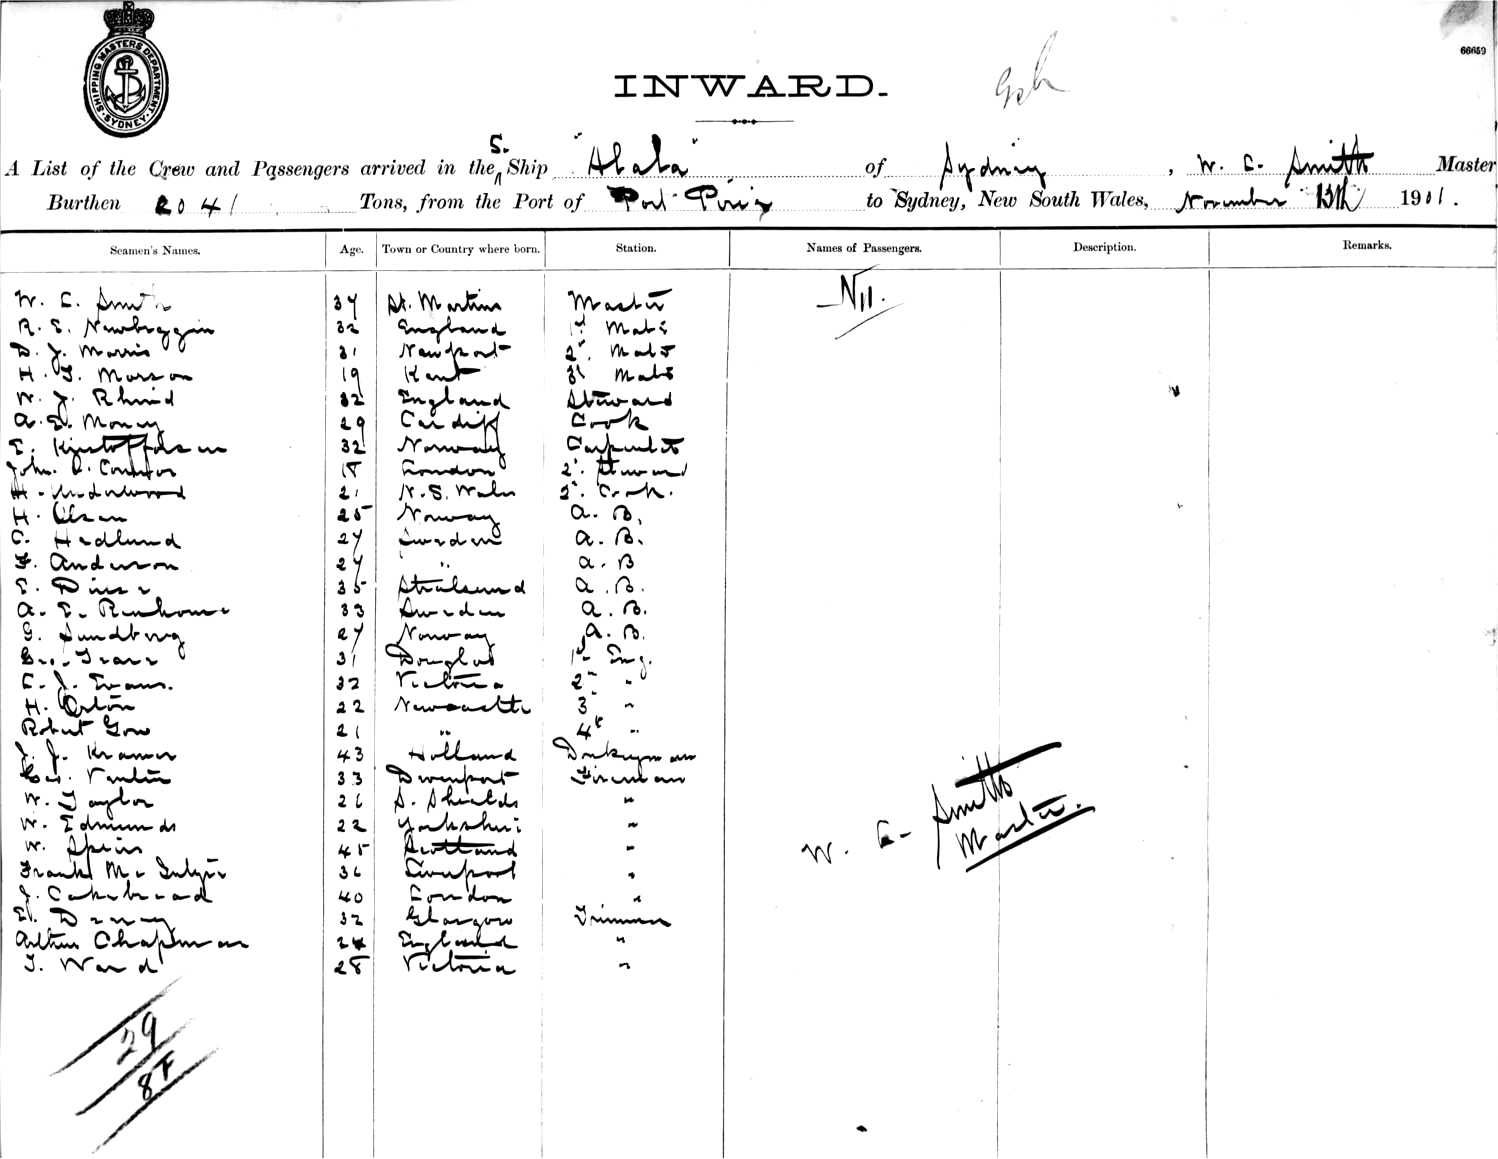 SHIPPING MASTERS DEPARTMENT. SYDNEY.
66659
INWARD.
A List of the Crew and Passengers arrived in the S. Ship "Ababa" of Sydney, W. C. Smith Master
Burthen 2041 Tons, from the Port of Port Pirie to Sydney, New South Wales, November 13th 1901.
Seamen's Names. Age. Town or Country where born. Station. Names of Passengers. Description. Remarks.
W. C. Smith 37 St. Martins Master Nil.
R. E. Newbiggin 32 England 1st Mate
D. J. Morris 31 Newport 2d. Mate
H. G. Marson 19 Kent 3d Mate
W. J. Rhind 32 England Steward
A. E. 29 Cardiff Cook
E. 32 Norway Carpenter
John. O. Connor 18 London 2d. Steward
H. Underwood 21 N. S. Wales 2d. Cook.
H. Olsen 25 Norway A. B.
C. Hedlund 27 Sweden A. B.
F. Anderson 27 " A. B
E. 35 Stralsund A. B.
A. E. 33 Sweden A. B.
G. Sundberg 27 Norway A. B.
31 Douglas 1st Eng.
C. J. Evans. 32 Victoria 2d "
H. Orton 22 Newcastle 3d "
Robert Gow 21 " 4th "
J. J. Kramer 43 Holland Donkeyman
33 Devenport Fireman
W. Taylor 26 S. Shields "
W. Edmunds 22 Yorkshire "
W. Speirs 45 Scotland "
Frank Mc 36 Liverpool "
J. Cakebread 40 London "
E. 32 Glasgow Trimmer
Arthur Chapman 24 England "
T. Ward 28 Victoria "
W. C. Smith
Master.
29
8F